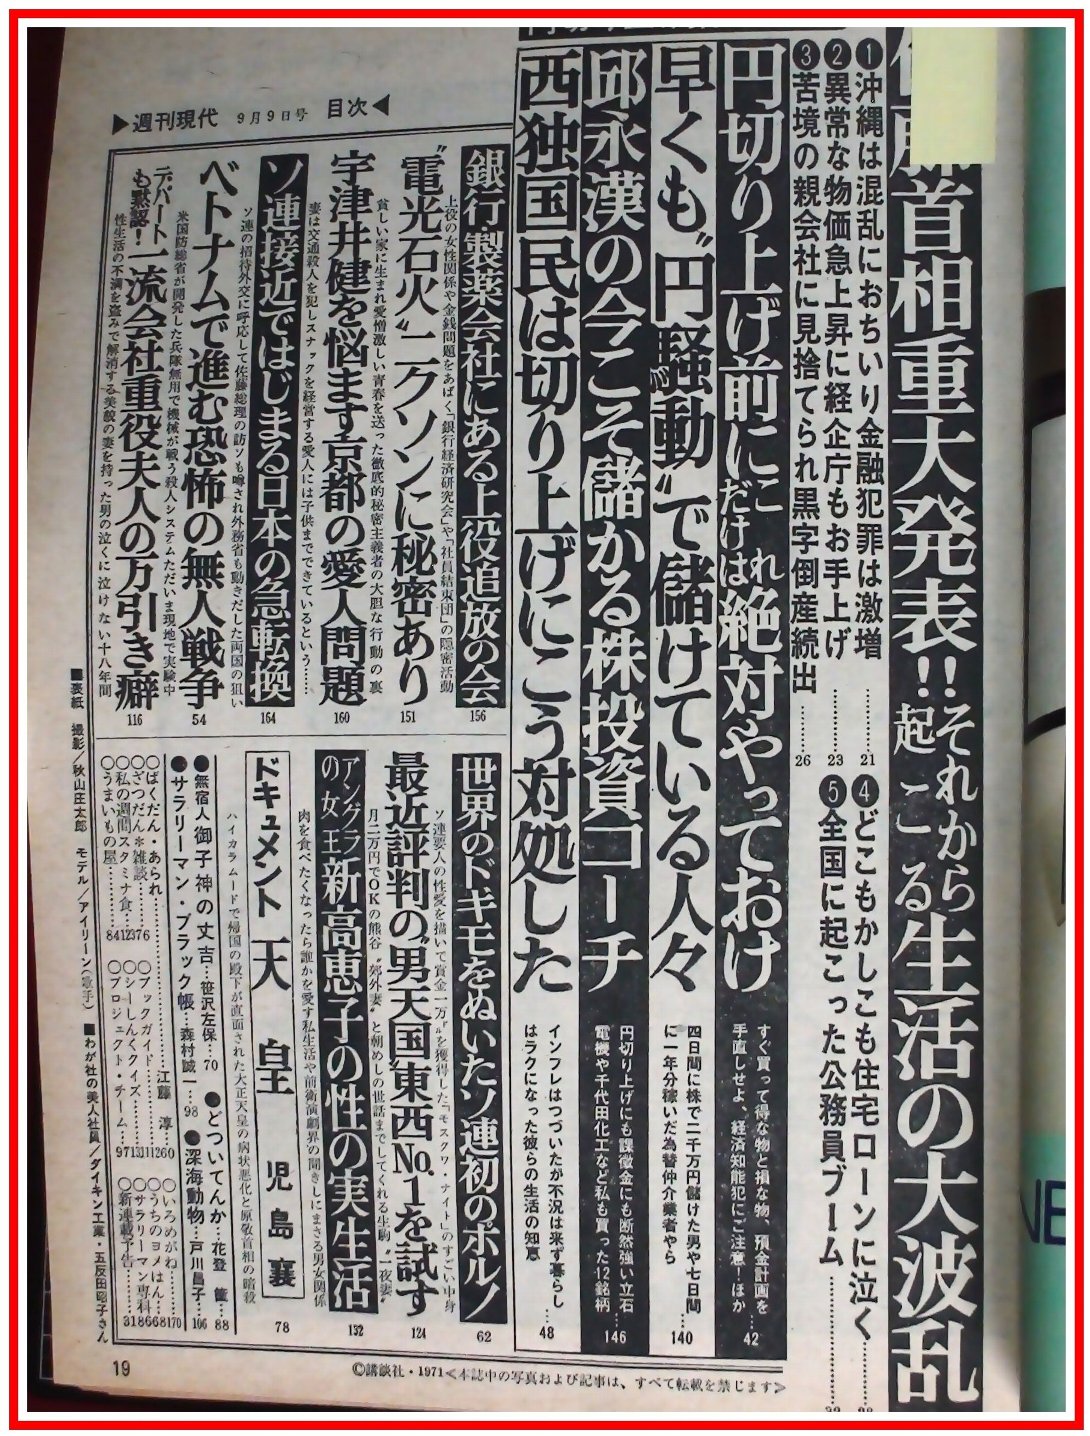 首相重大発表!!それから起こる生活の大波乱
❶沖縄は混乱におちいり金融犯罪は激増……21
❷異常な物価急上昇に経企庁もお手上げ……23
❸苦境の親会社に見捨てられ黒字倒産続出……26
❹どこもかしこも住宅ローンに泣く
❺全国に起こった公務員ブーム
円切り上げ前にこれだけは絶対やっておけ
すぐ買って得な物と損な物、預金計画を
手直しせよ、経済知能犯にご注意！ほか…42
早くも〝円騒動〟で儲けている人々
四日間に株で二千万円儲けた男や七日間
に一年分稼いだ為替仲介業者やら…140
邱永漢の今こそ儲かる株投資コーチ
円切り上げにも課徴金にも断然強い立石
電機や千代田化工など私も買った12銘柄…146
西独国民は切り上げにこう対処した
インフレはつづいたが不況は来ず暮らし
はラクになった彼らの生活の知恵…48
▶週刊現代 9月9日号 目次◀
銀行・製薬会社にある上役追放の会
上役の女性関係や金銭問題をあばく「銀行経済研究会」や「社員結束団」の隠密活動
156
〝電光石火〟ニクソンに秘密あり
貧しい家に生まれ愛憎激しい青春を送った徹底的秘密主義者の大胆な行動の裏
151
宇津井健を悩ます京都の愛人問題
妻は交通殺人を犯しスナックを経営する愛人には子供までできているという……
160
ソ連接近ではじまる日本の急転換
ソ連の招待外交に呼応して佐藤総理の訪ソも噂され外務省も動きだした両国の狙い
164
ベトナムで進む恐怖の無人戦争
米国防総省が開発した兵隊無用で機械が戦う殺人システムただいま現地で実験中
54
デパートも黙認！一流会社重役夫人の万引き癖
性生活の不満を盗みで解消する美貌の妻を持った男の泣くに泣けない十八年間
116
世界のドギモをぬいたソ連初のポルノ
ソ連要人の性愛を描いて賞金一万㌦を獲得した「モスクワ・ナイト」のすごい中身
62
最近評判の〝男天国〟東西No.1を試す
月二万円でOKの熊谷〝郊外妻〟と朝めしの世話までしてくれる生駒〝一夜妻〟
124
アングラの女王新高恵子の性の実生活
肉を食べたくなったら誰かを愛す私生活や前衛演劇界の聞きしにまさる男女関係
132
ドキュメント 天皇 児島襄
ハイカラムードで帰国の殿下が直面された大正天皇の病状悪化と原敬首相の暗殺
78
●無宿人御子神の丈吉…笹沢左保…70
●どついてんか…花登筺…88
●サラリーマン・ブラック帳…森村誠一…98
●深海動物…戸川昌子…106
○ばくだん・あられ
○ざつだん＊雑談……76
○私の週間スタミナ食……123
○うまいもの屋……84
○ブックガイド……江藤淳…60
○シーしんくクイズ
○プロジェクト・チーム…97
○いろめがね……170
○うちのヨメはん
○サラリーマン専科
○新連載予告
■表紙 撮影／秋山庄太郎 モデル／アイリーン(歌手) ■わが社の美人社員／ダイキン工業・五反田昭子さん
19
©講談社・1971＜本誌中の写真および記事は、すべて転載を禁じます＞